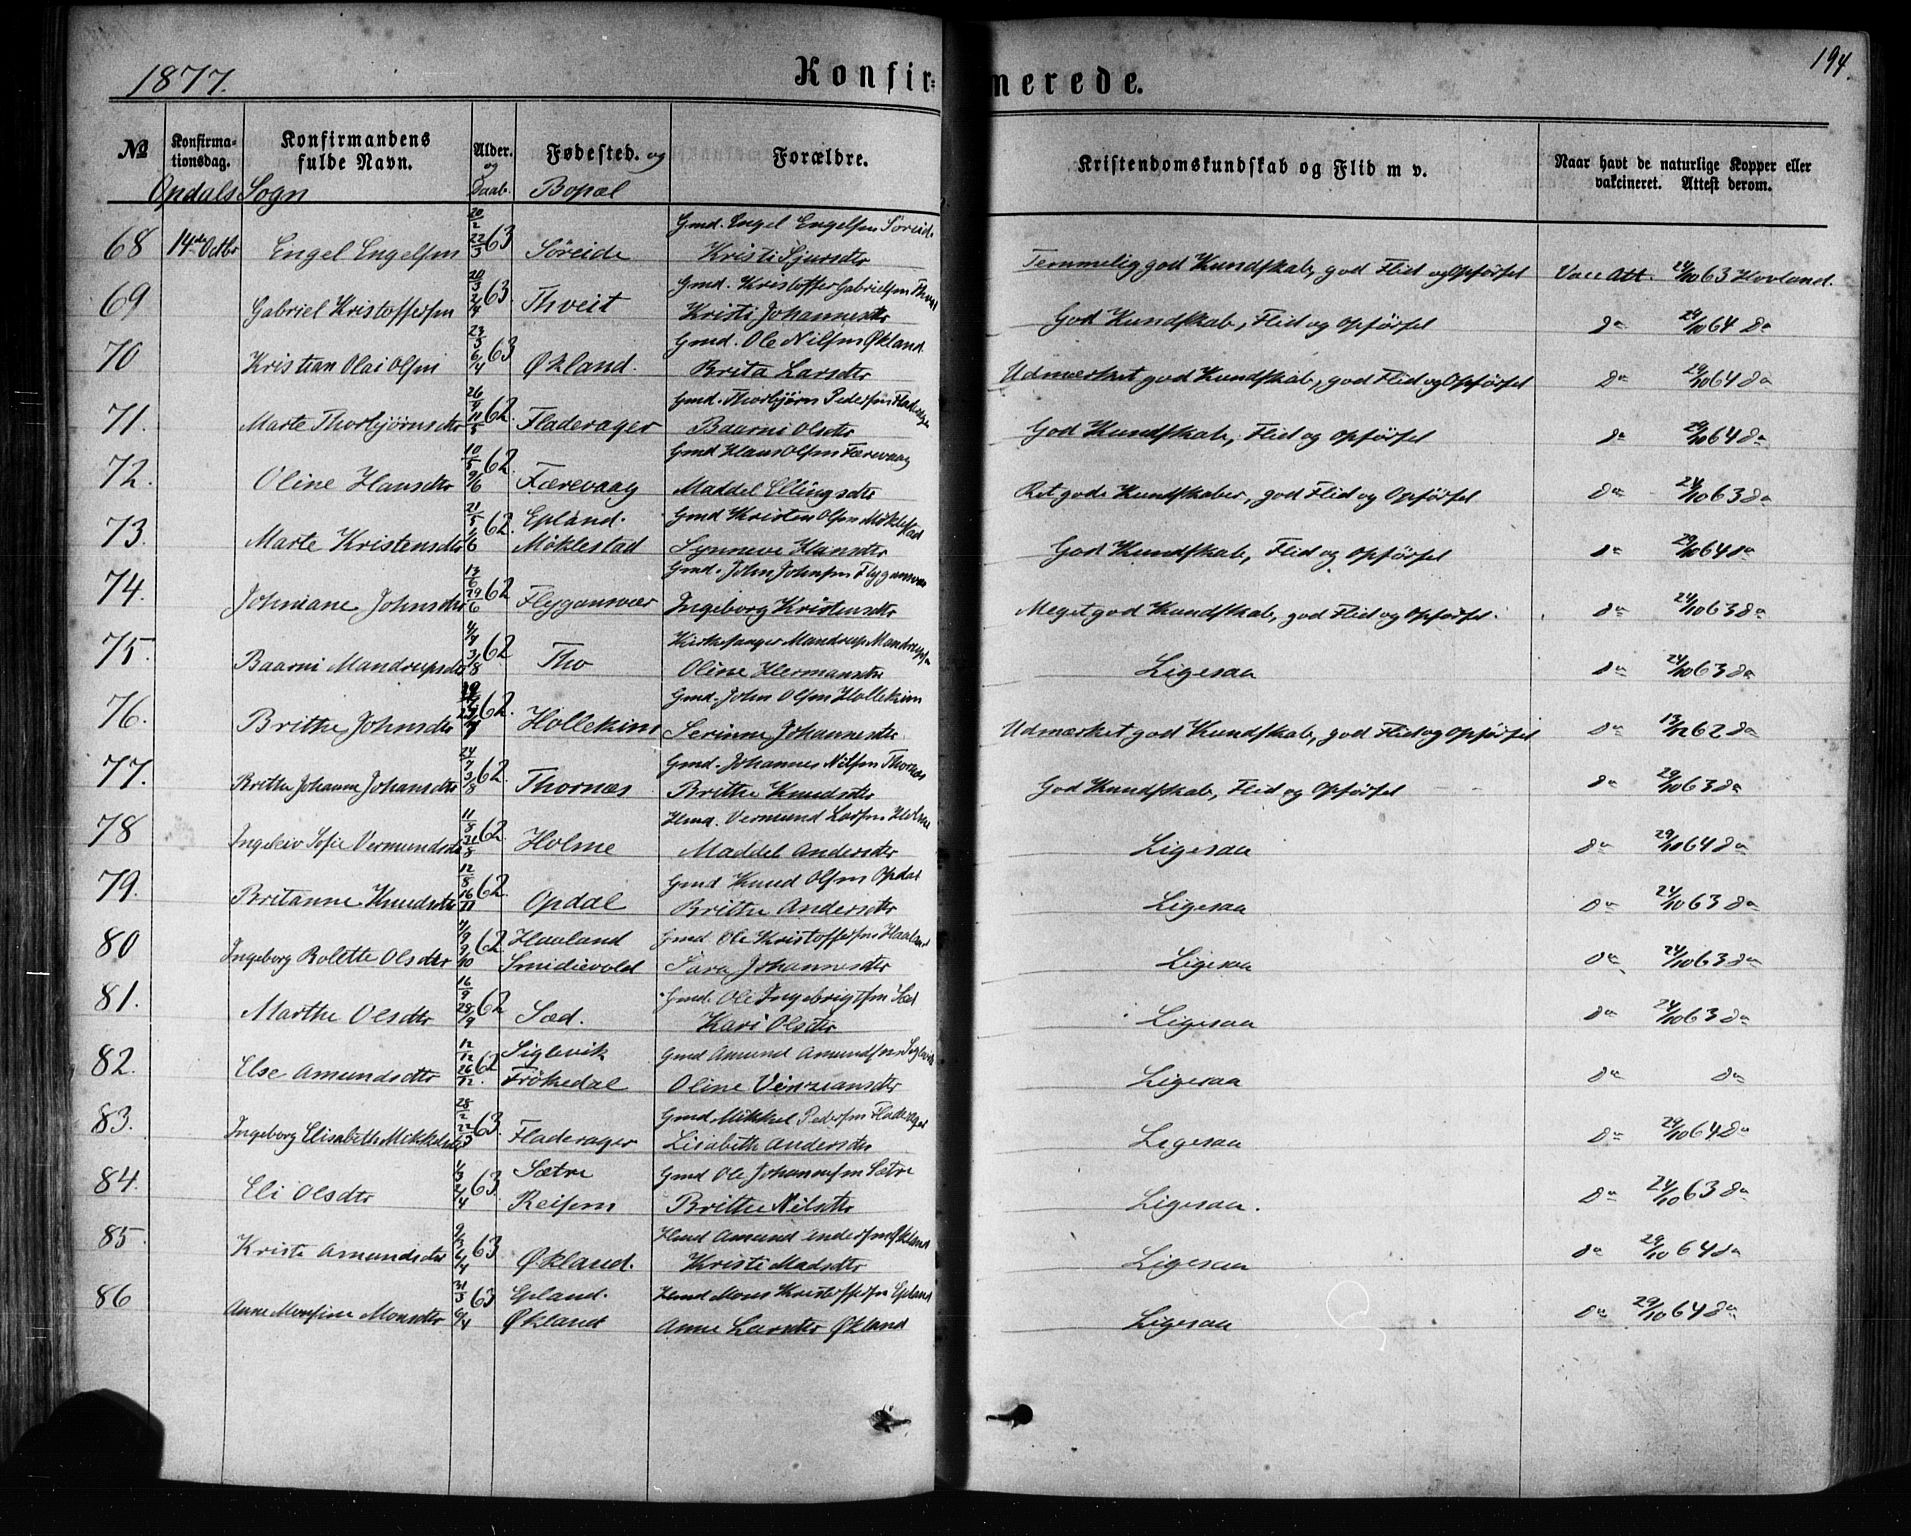 1877. Konfirmerede. 194.
No Konfirmationsdag. Konfirmandens fulde Navn. Alder. og Daab. Fødested. og Bopæl Forældre. Kristendomskundskab og Flid m v. Naar havt de naturlige Kopper eller vakcineret. Attest derom.
Opdals Sogn
68 14de Octbr Engel Engelsen 20/2 22/3 63 Søreide Gmd. Engel Engelsen Søreid. Kristi Sjursdtr Temmelig god Kundskab, god Flid og Opførsel Vacc Att. 24/10 63 Hovland.
69 Gabriel Kristoffersen 63 Thveit Gmd. Kristoffer Gabrielsen Thveit Kristi Johannesdtr God Kundskab, Flid og Opførsel do 29/10 64 do
70 Kristian Olai Olsen 23/3 6/4 63 Økland. Gmd. Ole Nilsen Økland. Brita Larsdtr Udmærket god Kundskab, god Flid og Opførsel do 29/10 64 do
71. Marte Thorbjørnsdtr 62. Fladerager Gmd. Thorbjørn Pedersen Fladerager Baarni Olsdtr God Kundskab, Flid og Opførsel do 29/10 64 do
72. Oline Hansdtr 10/5 9/6 62. Færevaag Gmd Hans Olsen Færevaag Maddel Ellingsdtr Ret gode Kundskaber, god Flid og Opførsel do 24/10 63 do
73. Marte Kristensdtr 21/5 62. Epland. Møklestad Gmd Kristen Olsen Møklestad Synneve Hansdtr God Kundskab, Flid og Opførsel do 29/10 64 do
74. Johniane Johnsdtr 13/6 29/6 62 Flygansvær Gmd. John Johnsen Flygansvær Ingeborg Kristensdtr Meget god Kundskab, god Flid og Opførsel. do 24/10 63 do
75. Baarni Mandrupsdtr 4/7 3/8 62 Tho Kirkesanger Mandrup Mandrupsen Oline Hermansdtr Ligesaa do 24/10 63 do
76. Brithe Johnsdtr 62. Hollekim Gmd. John Olsen Hollekim Serinne Johannesdtr Udmærket god Kundskab, god Flid og Opførsel do 13/12 62 do
77. Brithe Johanne Johansdtr 24/7 3/8 62. Thornæs Gmd. Johannes Nilsen Thornæs Brithe Knudsdtr God Kundskab, Flid og Opførsel do 29/10 63 do
78 Ingeleiv Sofie Vermundsdtr 11/8 31/8 62. Holme Hmd. Vermund Larsen Holme Maddel Andersdtr Ligesaa do 29/10 64 do
79. Britanne Knudsdtr 12/8 16/11 62. Opdal Gmd Knud Olsen Opdal Brithe Andersdtr Ligesaa do 24/10 63 do
80 Ingeborg Bolette Olsdtr 9/10 62 Haaland Smidievold Gmd Ole Kristoffersen Haaland Sara Johannesdtr Ligesaa do 24/10 63 do
81. Marthe Olsdtr 16/9 28/9 62 Sæd. Gmd. Ole Ingebrigtsen Sæd Kari Olsdtr Ligesaa do 24/10 63 do
82. Else Amundsdtr 12/12 26/12. 62 Siglevik Frøkedal Gmd Amund Amundsen Siglevik Oline Vinziansdtr Ligesaa do do
83. Ingeborg Elisabeth Mikkelsdtr 28/2 22/3 63. Fladerager Gmd Mikkel Pedersen Fladerager Lisabeth Andersdtr Ligesaa do 29/10 64 do
84. Eli Olsdtr 63. Sætre Reisem Gmd Ole Johannesen Sætre Brithe Nilsdtr Ligesaa. do 24/10 63 do
85. Kristi Amundsdtr 9/3 6/4 63 Økland. Hmd Amund Andersen Økland Kristi Madsdtr Ligesaa do 29/10 64 do
86 Anne Monsine Monsdtr 31/3 6/4 63 Epland. Økland Hmd Mons Kristoffersen Epland Anne Larsdtr Økland Ligesaa do 29/10 64 do